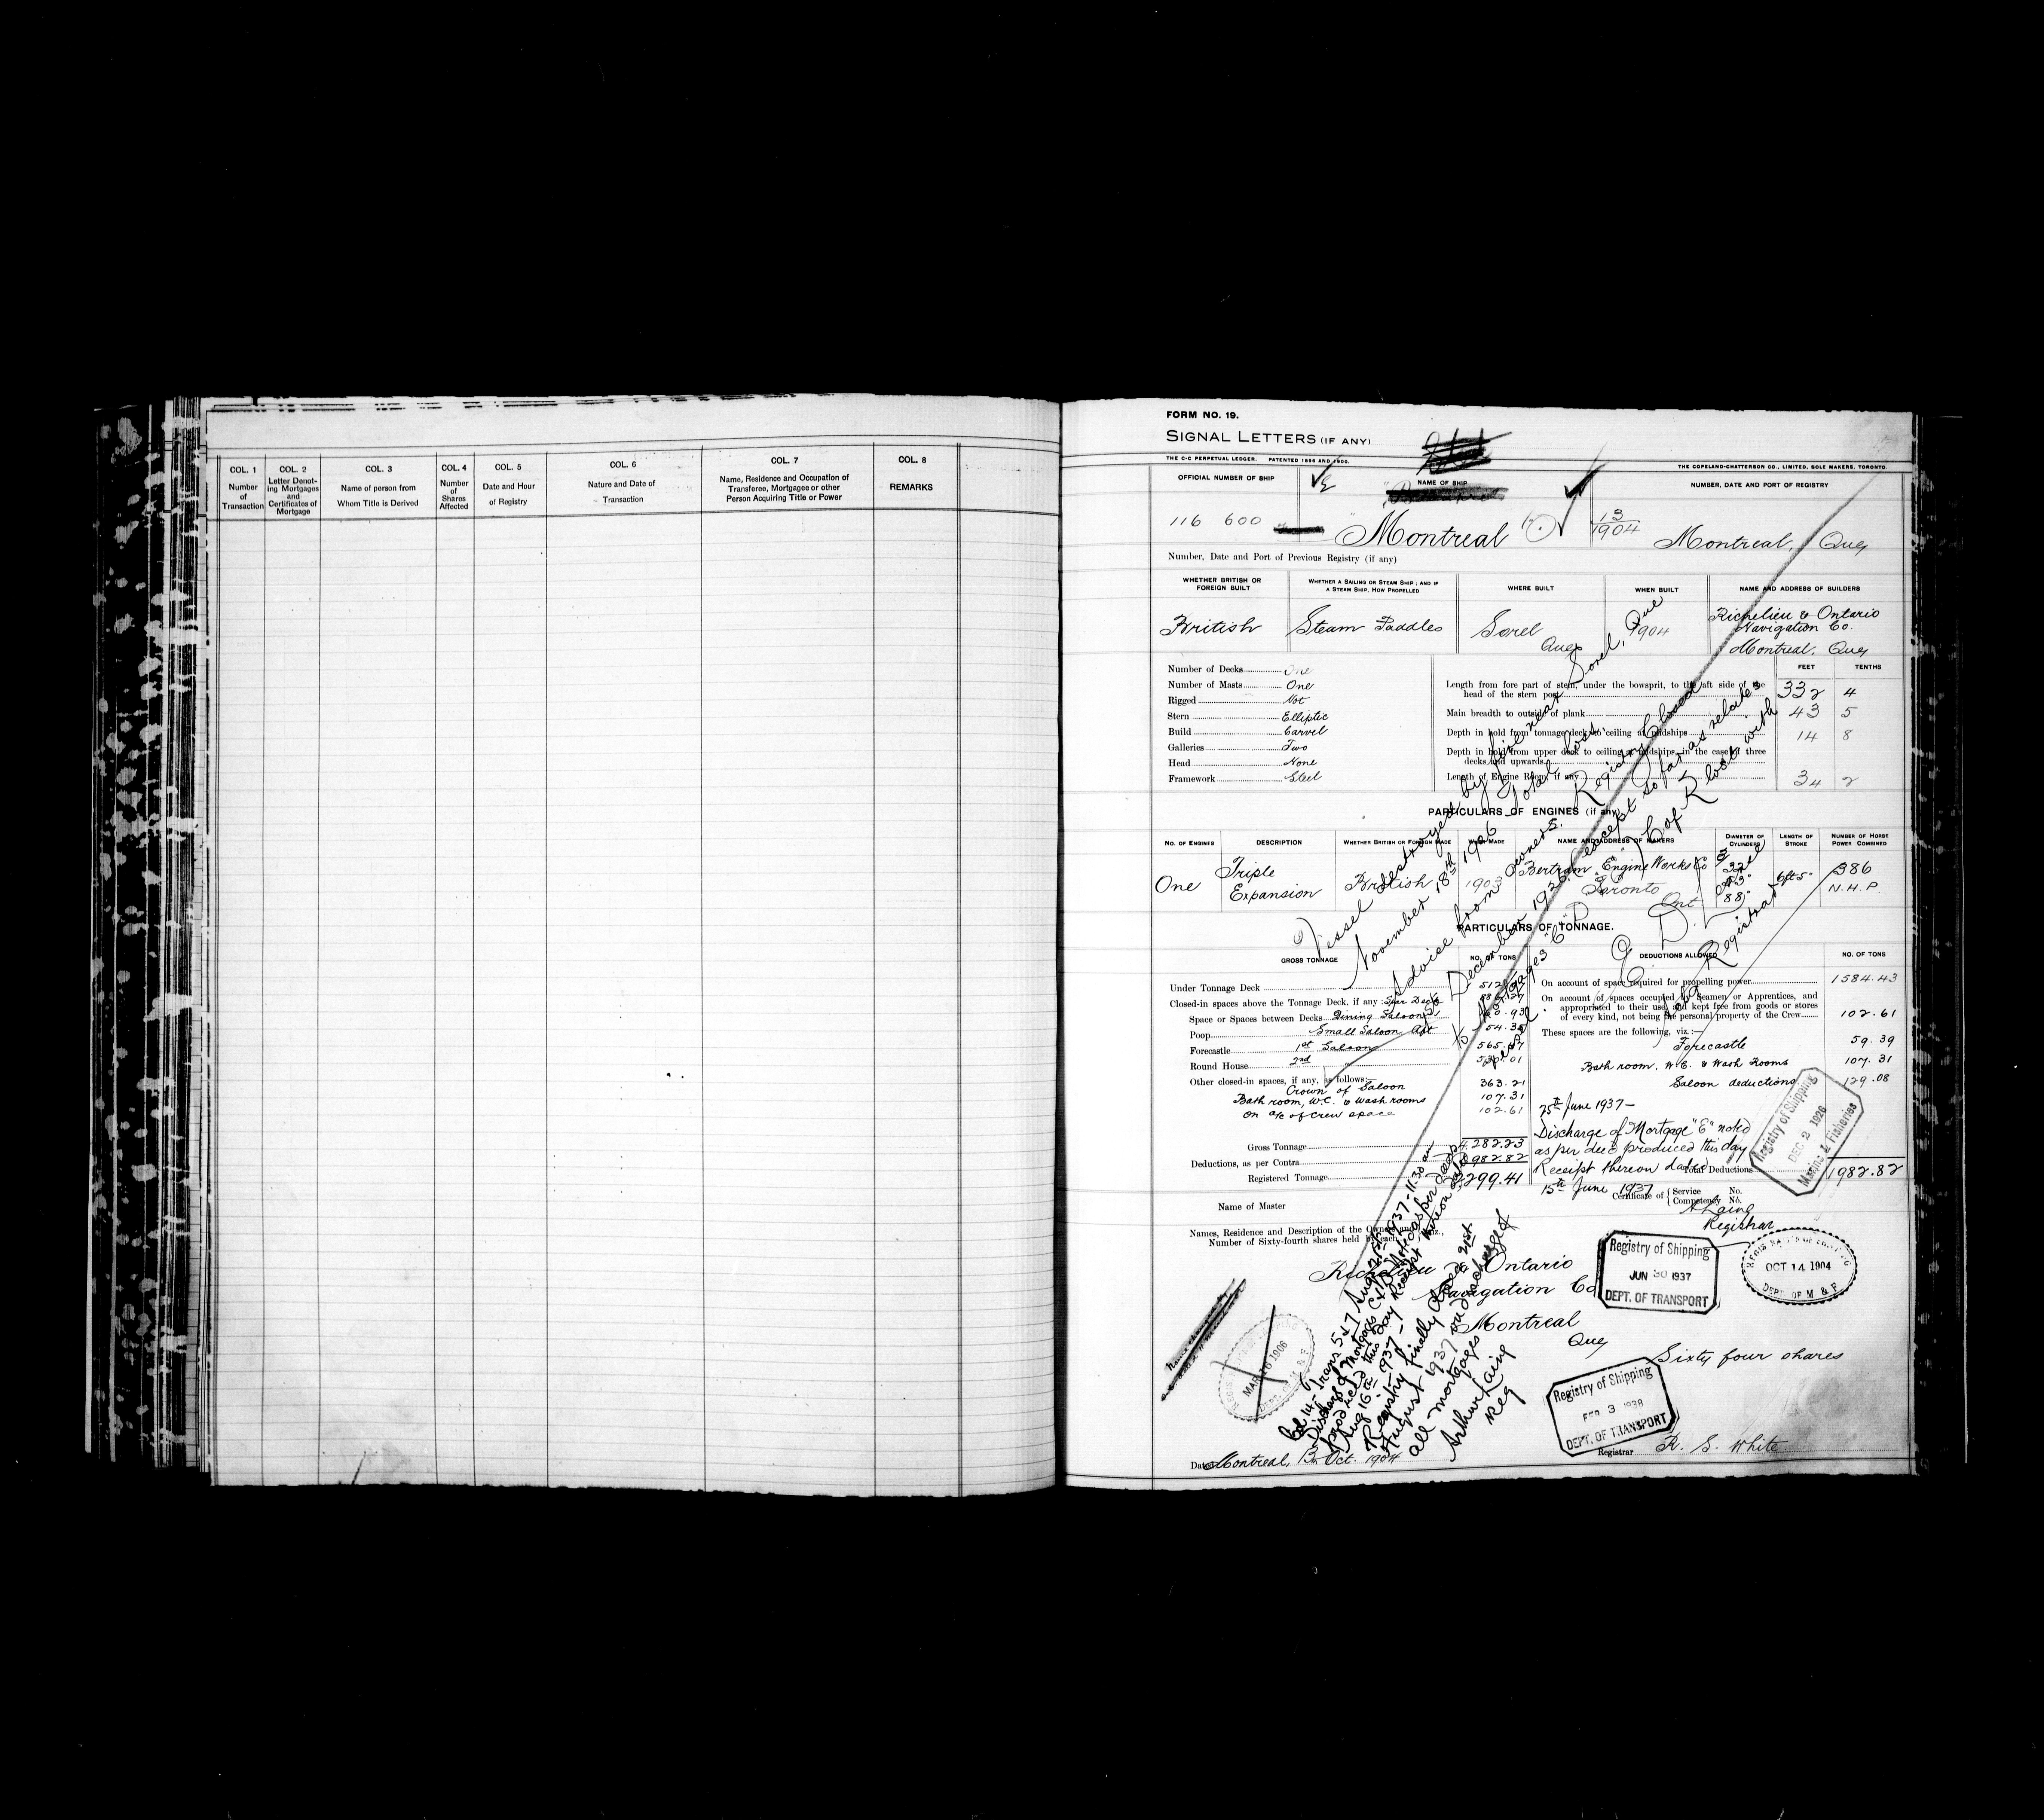 COL. 1
Number
of
Transaction
COL. 2
Letter Denot-
ing Mortgages
and
Certificates of
Mortgage
COL. 3
Name of person from
Whom Title is Derived
COL. 4
Number
of
Shares
Affected
COL. 5
Date and Hour
of Registry
COL. 6
Nature and Date of
Transaction
COL. 7
Name, Residence and Occupation of
Transferee, Mortgagee or other
Person Acquiring Title or Power
COL. 8
REMARKS
FORM NO. 19.
SIGNAL LETTERS (IF ANY)
THE C-C PERPETUAL LEDGER. PATENTED 1896 AND 1900.
THE COPELAND-CHATTERSON CO., LIMITED, SOLE MAKERS, TORONTO.
OFFICIAL NUMBER OF SHIP
NAME OF SHIP
NUMBER, DATE AND PORT OF REGISTRY
116 600
Montreal
13
1904
Montreal, Que
Number, Date and Port of Previous Registry (if any)
WHETHER BRITISH OR
FOREIGN BUILT
WHETHER A SAILING OR STEAM SHIP; AND IF
A STEAM SHIP, HOW PROPELLED
WHERE BUILT
WHEN BUILT
NAME AND ADDRESS OF BUILDERS
British
Steam Paddles
Sorel
Que
1904
Richelieu & Ontario
Navigation Co.
Montreal, Que
FEET TENTHS
Number of Decks One
Number of Masts One
Rigged Not
Stern Elliptic
Build Carvel
Galleries Two
Head None
Framework Steel
Length from fore part of stem, under the bowsprit, to the aft side of the
head of the stern post 332 4
Main breadth to outside of plank 43 5
Depth in hold from tonnage deck to ceiling at midships 14 8
Depth in hold from upper deck to ceiling at midships, in the case of three
decks and upwards
Length of Engine Room, if any 34 2
PARTICULARS OF ENGINES (if any)
NO. OF ENGINES
DESCRIPTION
WHETHER BRITISH OR FOREIGN MADE
WHEN MADE
NAME AND ADDRESS OF MAKERS
DIAMETER OF
CYLINDERS
LENGTH OF
STROKE
NUMBER OF HORSE
POWER COMBINED
One
Triple
Expansion
British
1903
Bertram Engine Works Co
Toronto
Ont
88"
6ft 5"
386
N.H.P.
PARTICULARS OF TONNAGE.
GROSS TONNAGE
NO. OF TONS
DEDUCTIONS ALLOWED
NO. OF TONS
Under Tonnage Deck
Closed-in spaces above the Tonnage Deck, if any: Spar Deck
Space or Spaces between Decks Dining Saloon
Poop Small Saloon Aft
Forecastle 1st Saloon
Round House 2nd
Other closed-in spaces, if any, as follows:
Crown of Saloon 363.21
Bath room, W.C. & Wash rooms 107.31
On a/c of Crew space 102.61
Gross Tonnage 4282.23
Deductions, as per Contra 1982.82
Registered Tonnage 2299.41
On account of space required for propelling power 1584.43
On account of spaces occupied by Seamen or Apprentices, and
appropriated to their use, and kept free from goods or stores
of every kind, not being the personal property of the Crew 102.61
These spaces are the following, viz.:—
Forecastle 59.39
Bath room, W.C. & Wash Rooms 107.31
Saloon deductions 129.08
Total Deductions 1982.82
25th June 1937—
Discharge of Mortgage "E" noted
as per deed produced this day
Receipt thereon dated
15th June 1937
A Laing
Registrar
Name of Master
Certificate of Service No.
Competency No.
Names, Residence and Description of the Owners, and viz.,
Number of Sixty-fourth shares held by each
Richelieu & Ontario
Navigation Co
Montreal
Que
Sixty four shares
Dated Montreal, 13th Oct. 1904
Registrar R. S. White
Vessel destroyed by fire near Sorel, Que
November 18th 1926 Total loss
Advice from owners. Registry Closed
December 1926 except so far as relates
C of R lost with
vessel
Registrar
Discharge of Mortgages
produced this day Receipt thereon dated
Aug 16th 1937
Registry finally closed 21st
August 1937 on discharge of
all mortgages
Arthur Laing
Reg
Registry of Shipping
DEC 2 1926
Marine & Fisheries
Registry of Shipping
JUN 30 1937
DEPT. OF TRANSPORT
OCT 14 1904
DEPT. OF M & F
MAR 16 1906
DEPT. OF M & F
Registry of Shipping
FEB 3 1938
DEPT. OF TRANSPORT